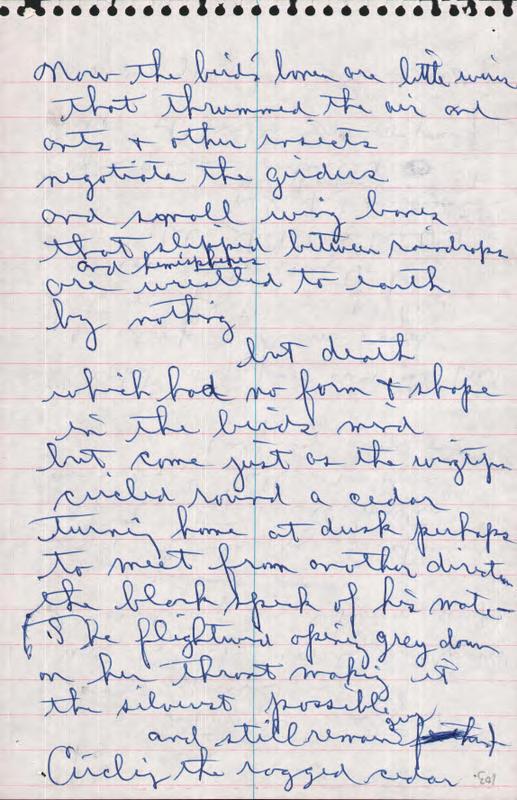 Now the bird's bones are little wires
that thrummed the air and
ants & other insects
negotiate the girders
and small wing bones
that slipped between raindrops
and hemispheres
are wrestled to earth
by nothing
but death
which had no form & shape
in the birds mind
but come just as the wingtips
circled round a cedar
turning home at dusk perhaps
to meet from another direction
the black speck of his mate —
(The flightwind opening grey down
on her throat making it
the silverest possible
grey
and still remain )
Circling the ragged cedar
103.